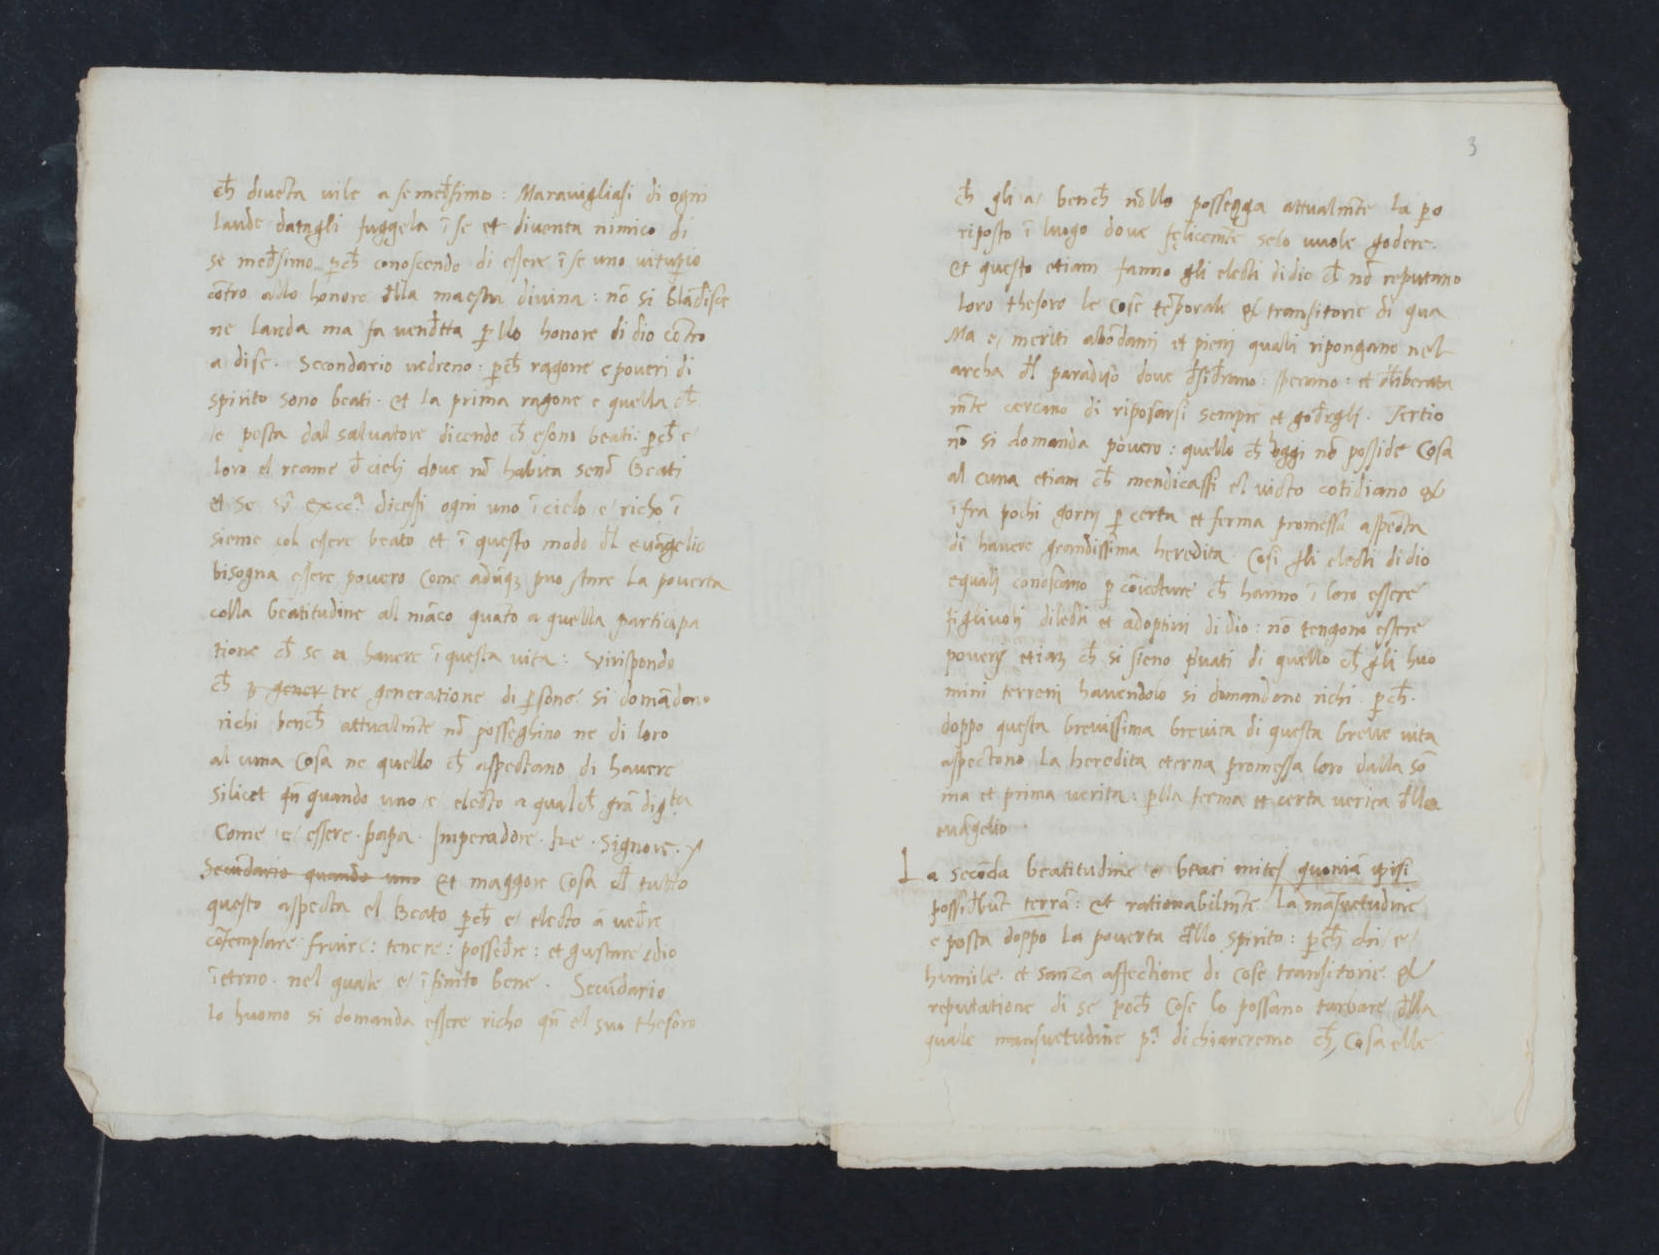 ch̄ diuēta uile a se med̄simo : Marauigliasi di ogni
laude datagli fuggela ī se et diuenta nimico di
se med̄simo pch̄ conoscendo di essere ī se uno uitupio
cōtro allo honore d̄lla maesta diuina : nō si blādisce
ne lauda ma fa vend̄tta p llo honore di dio cōtro
a di se . Secondario uedreno : pch̄ ragone e poueri di
spirito sono beati . et la prima ragone e quella ch̄
e posta dal saluatore dicendo ch̄ e sono beati : pch̄ e
loro el reame d̄ cieli doue nō habita senō Beati
et se dicessi ogni uno ī cielo e richo ī
sieme col essere beato et ī questo modo d̄l euāgelio
bisogna essere pouero Come adūqȝ puo stare la pouerta
colla beatitudine al māco quāto a quella participa
tione ch̄ se a hauere ī questa uita : Virispondo
ch̄ p gener tre generatione di psone si domādono
richi bench̄ attualmēte nō posseghino ne di loro
al cuna Cosa ne quello ch̄ aspectano di hauere
Silicet qn̄ quando uno e electo a qualch̄ grā digta
Come e essere . papa . Imperadore . Re . Signore .
Secūdario quando uno et maggore Cosa ch̄ tutto
questo aspecta el Beato pch̄ e electo a ued̄re
cōtemplare fruire : tenere : possed̄re : et gustare idio
ī eterno . nel quale e īfinito bene . Secūdario
lo huomo si domanda essere richo qn̄ el suo thesoro
3
ch̄ gli a bench̄ nollo possegga attualmēte la po
riposto ī luogo doue felicemēte selo uuole godere .
et questo etiam fanno gli electi di dio ch̄ nō reputano
loro thesoro le Cose tēporale & transitorie di qua
Ma e meriti abōdanti et pieni quali ripongano nel
archa d̄l paradiso doue d̄sid̄rano : sperano : et d̄liberata
mēte cercano di riposarsi sempre et god̄rgli . Tertio
nō si domanda pouero : quello ch̄ oggi nō posside Cosa
al cuna etiam ch̄ mendicassi el uicto cotidiano &
ī fra pochi gorni p certa et ferma promessa aspecta
di hauere grandissima heredita . Cosi gli electi di dio
e quali conoscano p cōiecture ch̄ hanno ī loro essere
figliuoli dilecti et adoptiui di dio : nō tengono essere
poueri etiaȝ ch̄ si sieno pͥuati di quello ch̄ gli huo
mini terreni hauendolo si dimandono richi . pch̄ .
doppo questa breuissima breuita di questa breue uita
aspectono la heredita eterna promessa loro dalla sō
ma et prima uerita : plla ferma et certa uerita d̄llo
euāgelio .
La secōda beatitudine e beati mites quoniā ipsi
possid̄būt terrā : et rationabilmēte la māsuetudine
e posta doppo la pouerta d̄llo spirito : pch̄ chi e
humile . et sanza affectione di cose transitorie &
reputatione di se poch̄ Cose lo possano turbare d̄lla
quale mansuetudine pͣ dichiareremo ch̄ Cosa elle